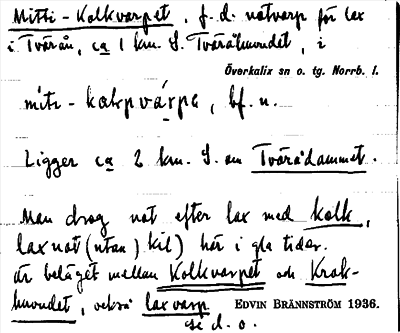 Mitti-Kolkvarpet, f.d. notvarp för lax
i Tvärån, ca 1 km. S. Tväråhuvudet, i
Överkalix sn o. tg. Norrb. l.
mìti-kɑlpvárpə, bf. n.
Ligger ca 2 km. S. om TväråDammet.
Man drog not efter lax med kolk,
laxnot (utan) kil) här i gla tider.
Är beläget mellan Kolkvarpet och Krok-
huvudet, också laxvarp EDVIN BRÄNNSTRÖM 1936.
se d. o.